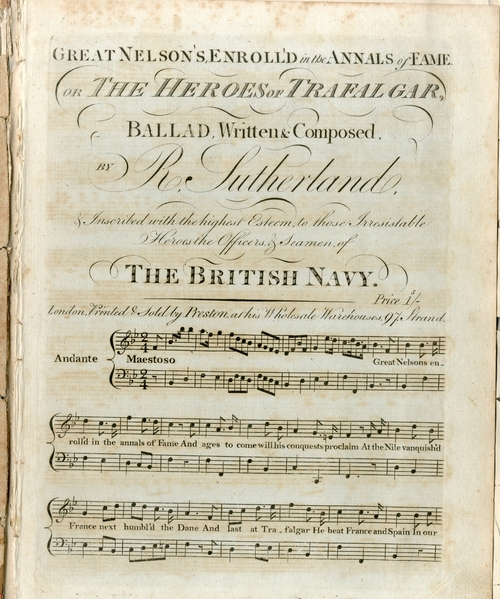 GREAT NELSON'S, ENROLL'D in the ANNALS of FAME.
OR THE HEROES OF TRAFALGAR,
BALLAD, Written & Composed,
BY R. Sutherland,
& Inscribed with the highest Esteem, to those Irresistable
Heroes the Officers, & Seamen, of
THE BRITISH NAVY.
Price 1s/-
London, Printed & Sold by Preston, at his Wholesale Warehouses, 97, Strand.
Andante Maestoso Great Nelsons en-
roll'd in the annals of Fame And ages to come will his conquests proclaim At the Nile vanquish'd
France next humbl'd the Dane And last at Tra-falgar He beat France and Spain In our